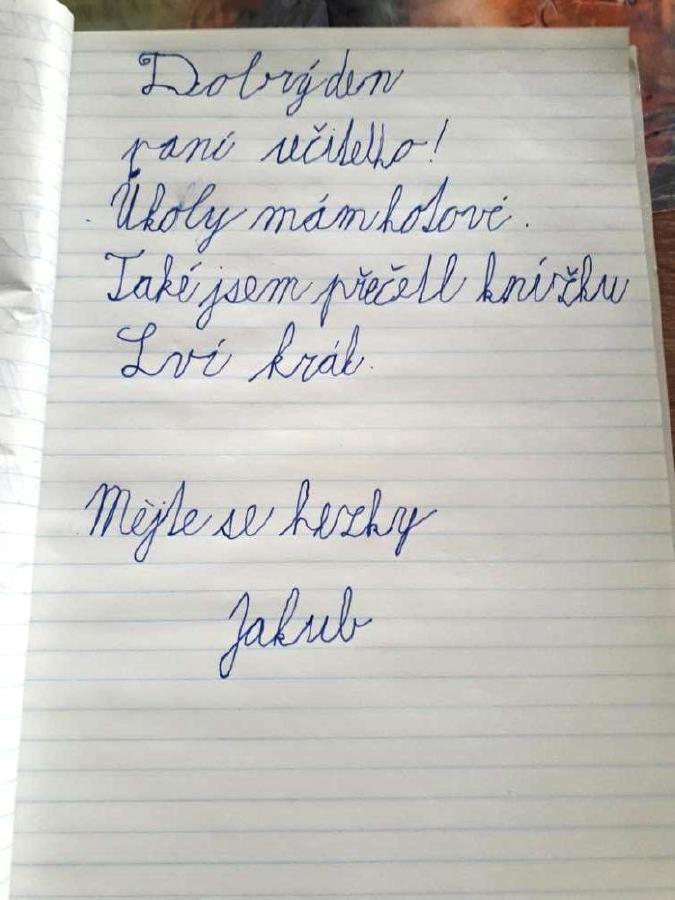 Dobrý den
paní učitelko!
Úkoly mám hotové.
Také jsem přečetl knížku
Lví král.
Mějte se hezky
Jakub